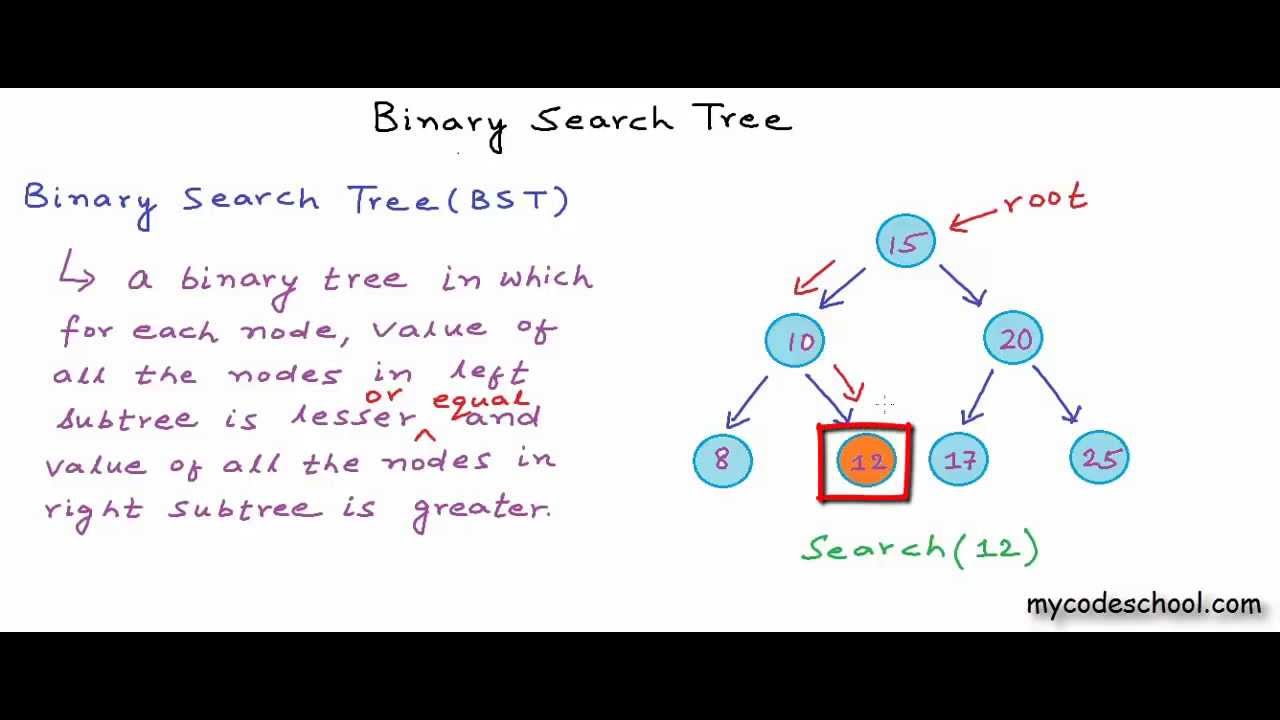 Binary Search Tree
Binary Search Tree (BST)
a binary tree in which
for each node, value of
all the nodes in left
or equal
subtree is lesser ^ and
value of all the nodes in
right subtree is greater.
root
15
10
20
8
12
17
25
Search(12)
mycodeschool.com